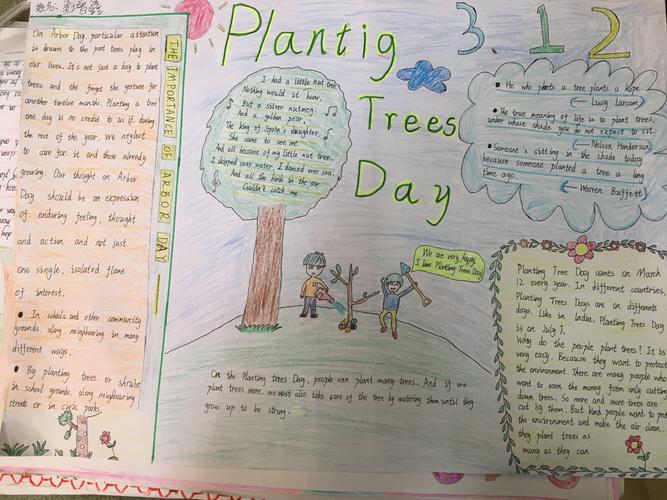 姓名:
Plantig
Trees
Day
3.12
THE IMPORTANCE OF ARBOR DAY
On Arbor Day, particular attention
is drawn to the part trees play in
our lives. It's not just a day to plant
trees and the forget the gesture for
another twelve months. Planting a tree
one day is no credit to us if. during
the rest of the year, we neglect
to care for it and those already
growing. Our thought on Arbor
Day should be an expression
of enduring feeling, thought
and action and not just
one single, isolated flame
of interest.
● In schools and other community
grounds, along neighbouring in many
different ways.
● By planting trees or shrubs
in school grounds, along neighbouring
streets or in civic parks.
I had a little nut tree
Nothing would it bear,
But a silver nutmeg,
And a golden pear.
The king of Spain's daughter,
She came to see me
And all because of my little nut tree.
I skipped over water, I danced over sea.
And all the birds in the air
Couldn't catch me.
● He who plants a tree plants a hope.
← Lucy Larcom
● The true meaning of life is to plant trees,
under whose shade you do not expect to sit.
← Nelson Henderson
● Someone's sitting in the shade today
because someone planted a tree a long
time ago.
← Warren Buffett
We are very happy
I love Planting Tree Day
On the Planting trees Day, people can plant many trees. And if we
plant trees more, we must also take care of the tree by watering them until they
grow up to be strong.
Planting Tree Day comes on March
12 every year. In different countries,
Planting Trees Days are on different
days. Like in India, Planting Trees Day
is on July 1.
Why do the people plant trees? It is
very easy. Because they want to protect
the environment. There are many people who
want to earn the money form only cutting
down trees. So more and more trees are
cut by them. But kind people want to protect
the environment and make the air clean.
they plant trees as
many as they can